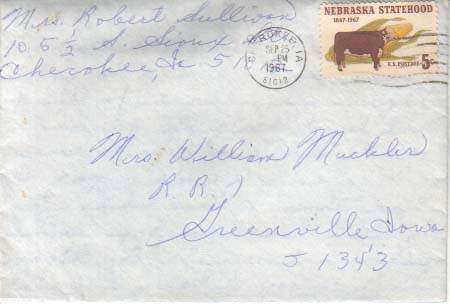 Mrs. Robert Sullivan
105½ S. Sioux
Cherokee, Ia 51
CHEROKEE, IA
SEP 25
PM
1967
51012
NEBRASKA STATEHOOD
1867-1967
U.S. POSTAGE 5c
Mrs. William Muckler
R. R. 1
Greenville Iowa
51343